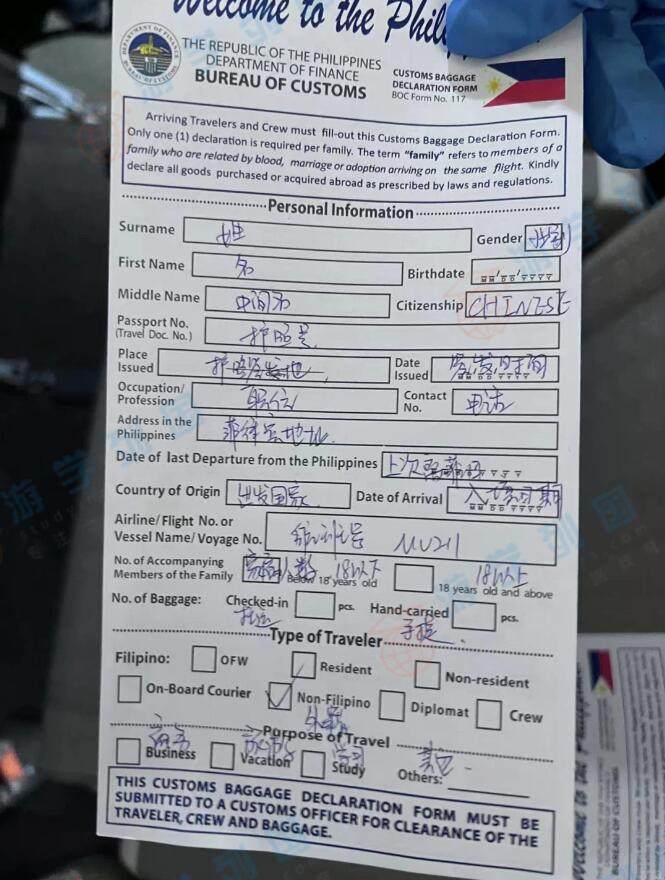 Welcome to the Phil
THE REPUBLIC OF THE PHILIPPINES
DEPARTMENT OF FINANCE
BUREAU OF CUSTOMS
CUSTOMS BAGGAGE
DECLARATION FORM
BOC Form No. 117
Arriving Travelers and Crew must fill-out this Customs Baggage Declaration Form.
Only one (1) declaration is required per family. The term "family" refers to members of a
family who are related by blood, marriage or adoption arriving on the same flight. Kindly
declare all goods purchased or acquired abroad as prescribed by laws and regulations.
Personal Information
Surname 姓 Gender 性别
First Name 名 Birthdate MM DD YYYY
Middle Name 中间名 Citizenship CHINESE
Passport No. 护照号
(Travel Doc. No.)
Place Issued 护照签发地 Date Issued 签发时间
Occupation/
Profession 职位 Contact No. 电话
Address in the
Philippines 菲律宾地址
Date of last Departure from the Philippines 上次
Country of Origin 出发国家 Date of Arrival 入境日期
Airline/Flight No. or
Vessel Name/Voyage No. 航班号 MU211
No. of Accompanying
Members of the Family 家庭人数 Below 18 years old 18以下 18 years old and above 18以上
No. of Baggage: Checked-in pcs. Hand-carried pcs.
托运 手提
Type of Traveler
Filipino: OFW Resident Non-resident
On-Board Courier Non-Filipino Diplomat Crew
外籍
Purpose of Travel
商务 旅游 学习 其他
Business Vacation Study Others:
THIS CUSTOMS BAGGAGE DECLARATION FORM MUST BE
SUBMITTED TO A CUSTOMS OFFICER FOR CLEARANCE OF THE
TRAVELER, CREW AND BAGGAGE.